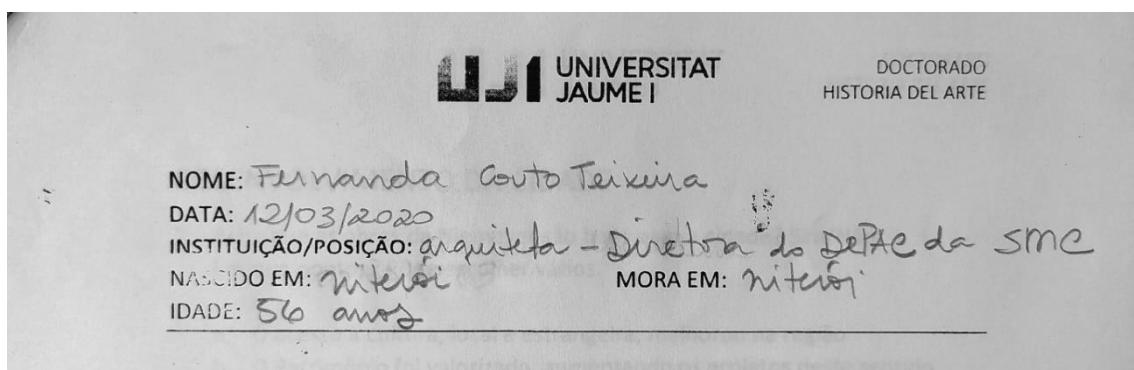 UJI UNIVERSITAT
JAUME I
DOCTORADO
HISTORIA DEL ARTE
NOME: Fernanda Couto Teixeira
DATA: 12/03/2020
INSTITUIÇÃO/POSIÇÃO: arquiteta - Diretora do DePAC da SMC
NASCIDO EM: Niterói MORA EM: Niterói
IDADE: 56 anos